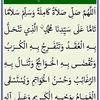 اللَّهُمَّ صَلِّ صَلَاةً كَامِلَةً وَسَلِّمْ سَلَامًا
تَامًّا عَلَى سَيِّدِنَا مُحَمَّدٍ الَّذِي تَنْحَلُّ
بِهِ الْعُقَدُ وَتَنْفَرِجُ بِهِ الْكُرَبُ
وَتُقْضَى بِهِ الْحَوَائِجُ وَتُنَالُ بِهِ
الرَّغَائِبُ وَحُسْنُ الْخَوَاتِمِ وَيُسْتَسْقَى